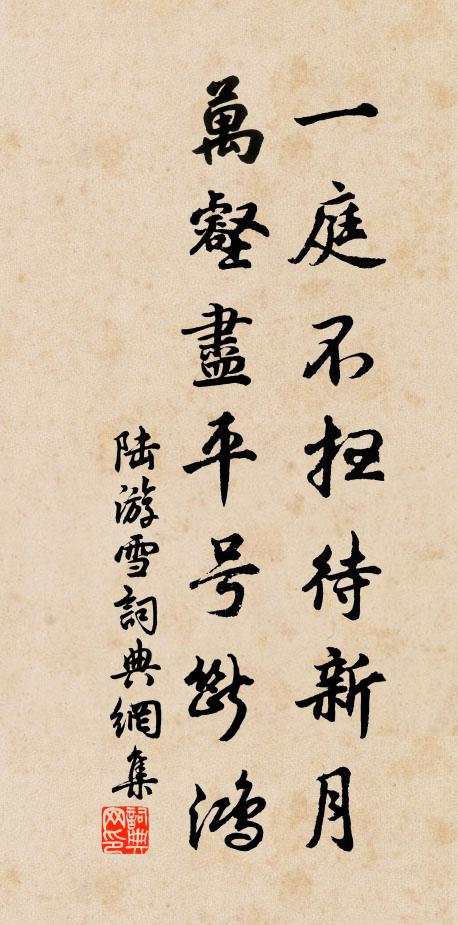 一庭不扫待新月
萬壑盡平号断鴻
陆游雪詞典網集
詞典网印